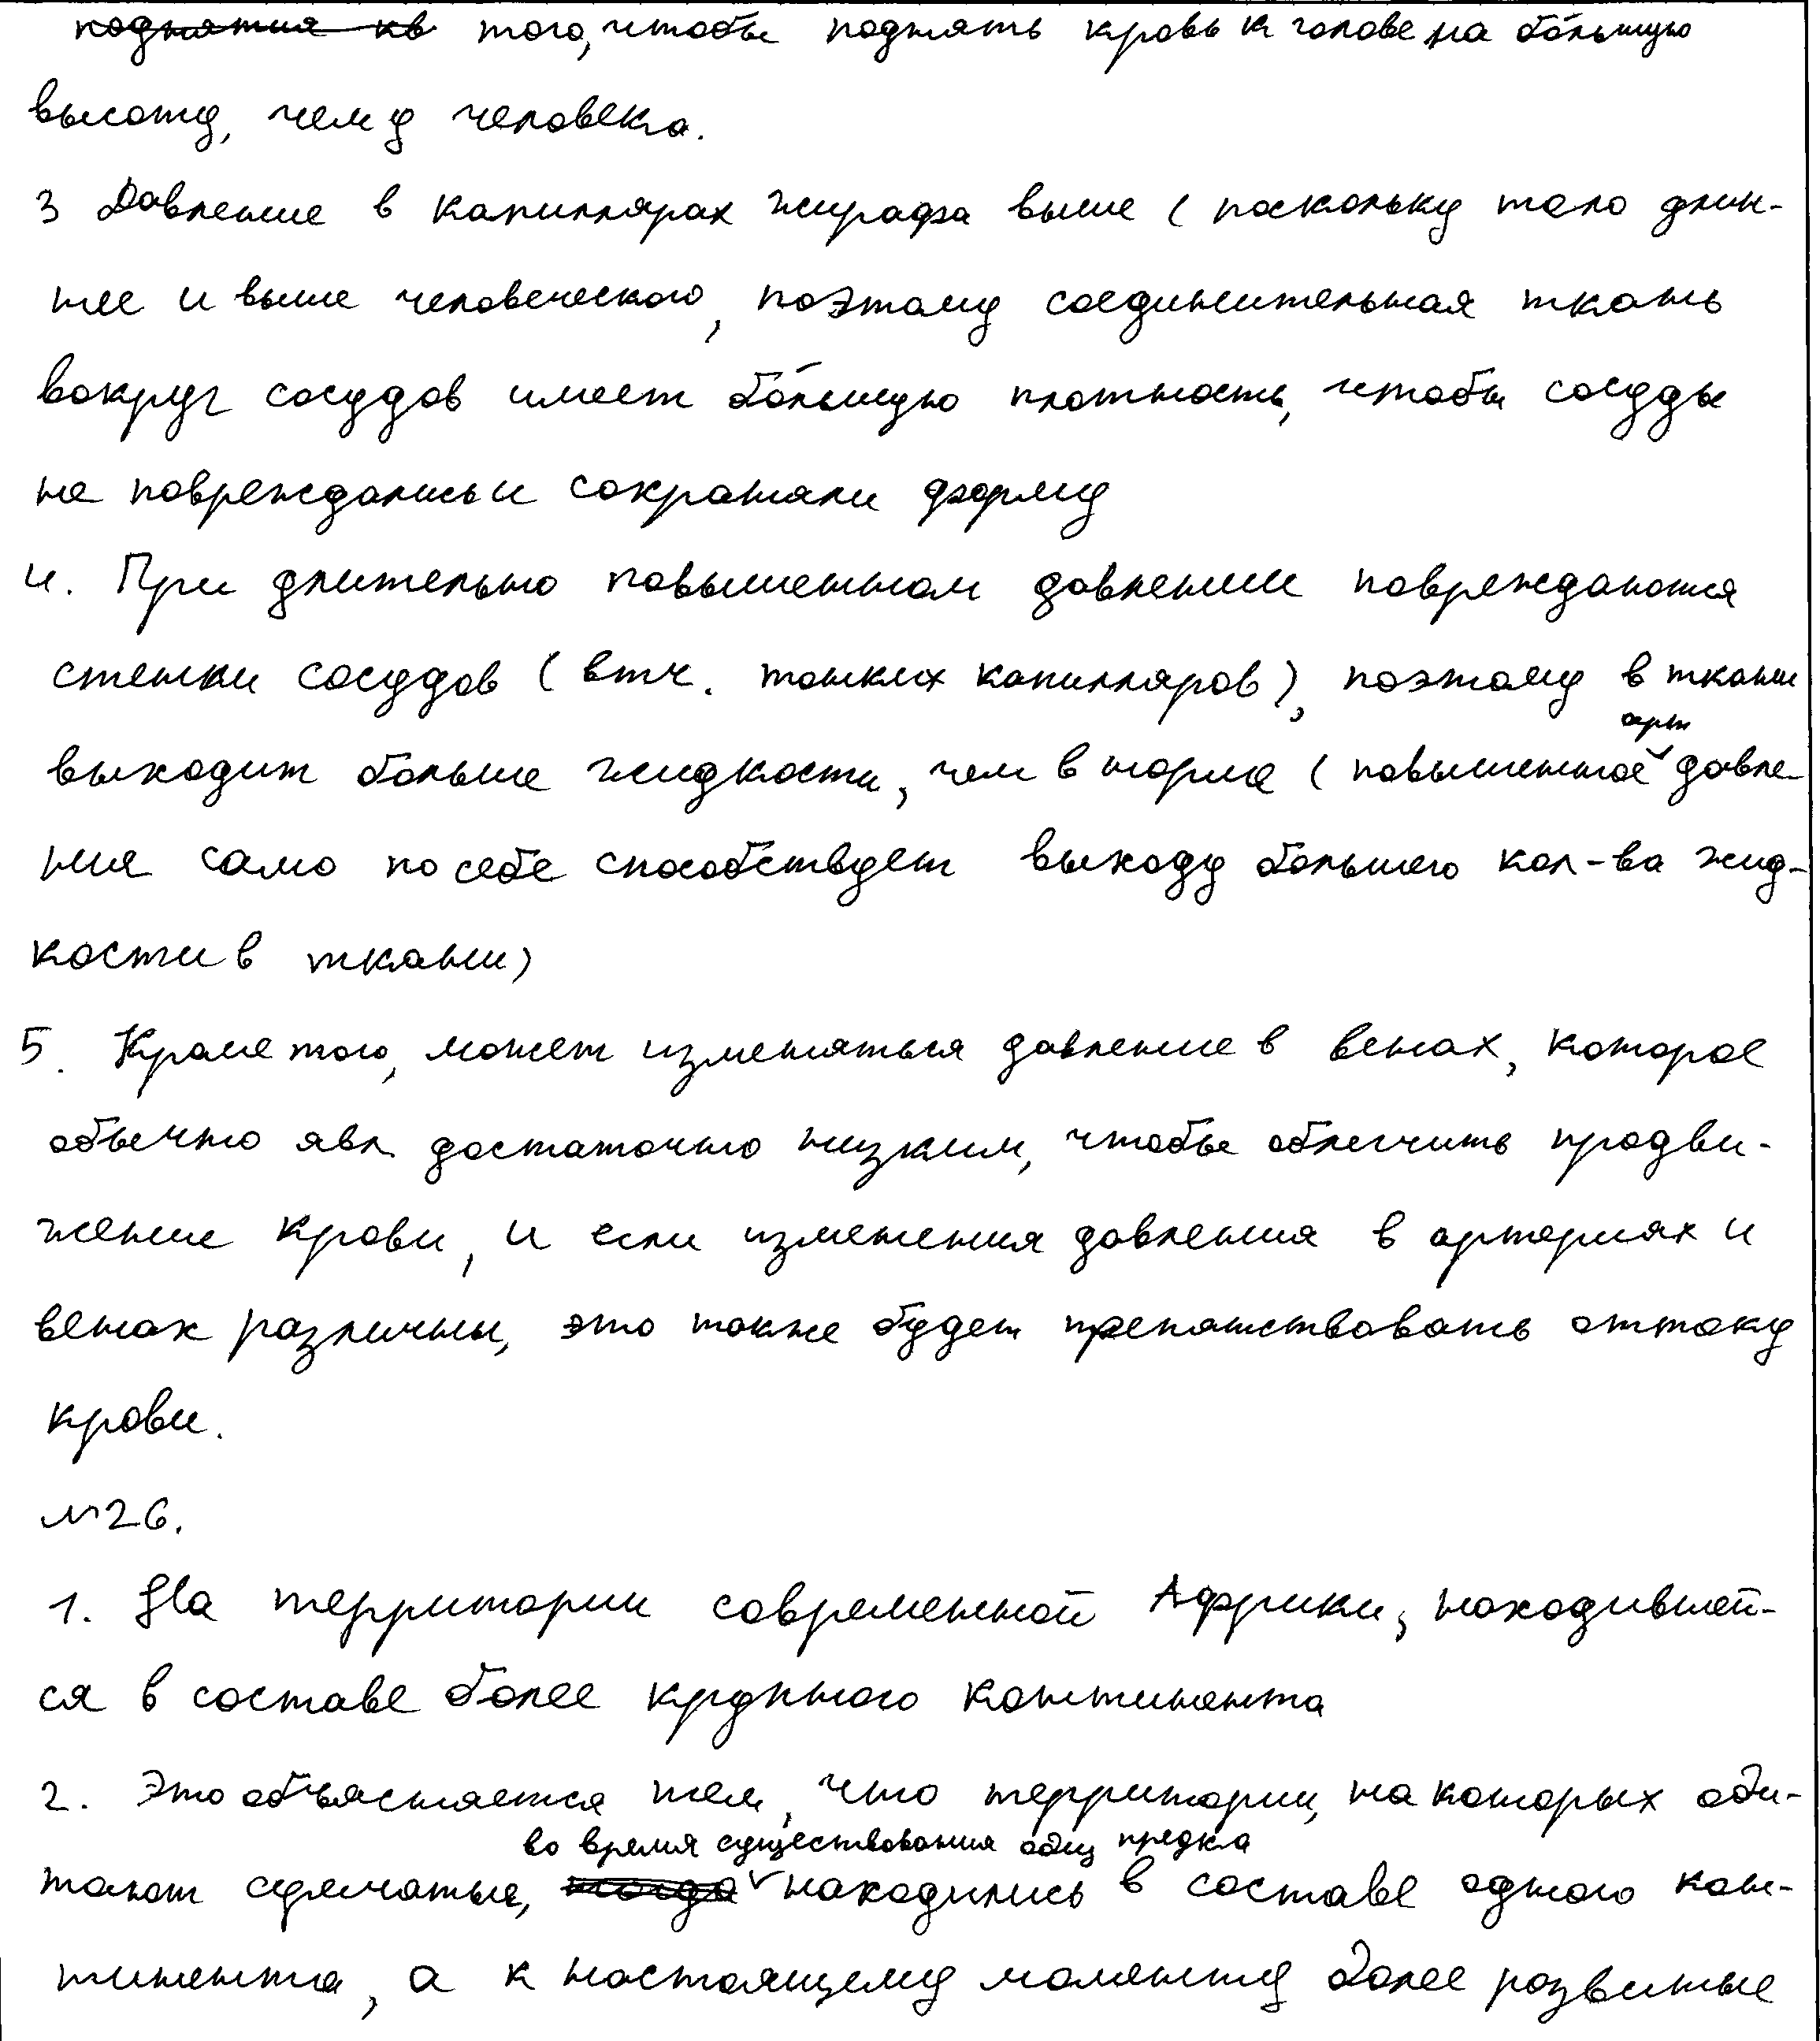 поднятия кв того, чтобы поднять кровь к голове на бо́льшую
высоту, чем у человека.
3 Давление в капиллярах жирафа выше (поскольку тело длин-
нее и выше человеческого, поэтому соединительная ткань
вокруг сосудов имеет бо́льшую плотность, чтобы сосуды
не повреждались и сохраняли форму
4. При длительно повышенном давлении повреждаются
стенки сосудов (в тч. тонких капилляров), поэтому в ткани
арт
выходит больше жидкости, чем в норме (повышенное давле-
ния само по себе способствует выходу большего кол-ва жид-
кости в ткани)
5. Кроме того, может изменяться давление в венах, которое
обычно явл достаточно низким, чтобы облегчить продви-
жение крови, и если изменения давления в артериях и
венах различны, это также будет препятствовать оттоку
крови.
№26.
1. На территории современной Африки, находившей-
ся в составе более крупного континента
2. Это объясняется тем, что территории, на которых оби-
во время существования общ предка
тают сумчатые, тогда находились в составе одного кон-
тинента, а к настоящему моменту более развитые